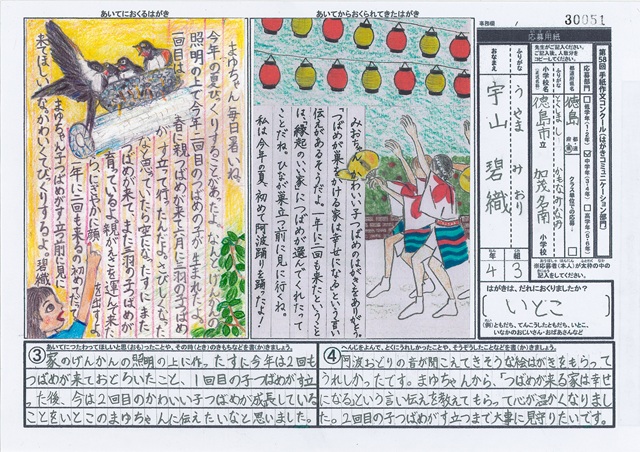 あいてにおくるはがき
あいてからおくられてきたはがき
事務欄
30051
まゆちゃん 毎日暑いね。
今年の夏びっくりすることがあったよ。なんと、げんかんの
照明の上で今年二回目のつばめの子が生まれたよ。
一回目は、
春に親つばめが来て六月に三羽の子つばめが
来てほしいな。かわいくてびっくりするよ。碧織
まゆちゃん子つばめがす立つ前に見に
みおちゃん、かわいい子つばめのはがきをありがとう。
「つばめが巣をかける家は幸せになる」という言い
伝えがあるそうだよ。一年に二回も来たということ
は、縁起のいい家につばめが選んでくれたって
ことだね。ひなが巣立つ前に見に行くね。
私は今年の夏、初めて阿波踊りを踊ったよ！
応募用紙
第58回 手紙作文コンクール〈はがきコミュニケーション部門〉
先生がご記入ください。
応募部門
低学年(1・2年)
中学年(3・4年)
高学年(5・6年)
都道府県名
徳島
クラス単位での応募
小学校名
徳島市立
加茂名南
小学校
ふりがな
うやま みおり
おなまえ
宇山 碧織
4年
3
はがきは、だれにおくりましたか？
(いとこ)
(例)ともだち、てんこうしたともだち、いとこ、
いなかのおじいさん・おばあさんなど
③あいてにつたわってほしいと思(おも)ったことや、その時(とき)のきもちなどを書(か)きましょう。
家のげんかんの照明の上に作ったすに今年は2回も
つばめが来ておどろいたこと、1回目の子つばめがす立っ
た後、今は2回目のかわいい子つばめが成長している
ことをいとこのまゆちゃんに伝えたいなと思いました。
④へんじをよんで、とくにうれしかったことや、そうぞうしたことなどを書(か)きましょう。
阿波おどりの音が聞こえてきそうな絵はがきをもらって
うれしかったです。まゆちゃんから、「つばめが来る家は幸せ
になる」という言い伝えを教えてもらって心が温かくなりまし
た。2回目の子つばめがす立つまで大事に見守りたいです。